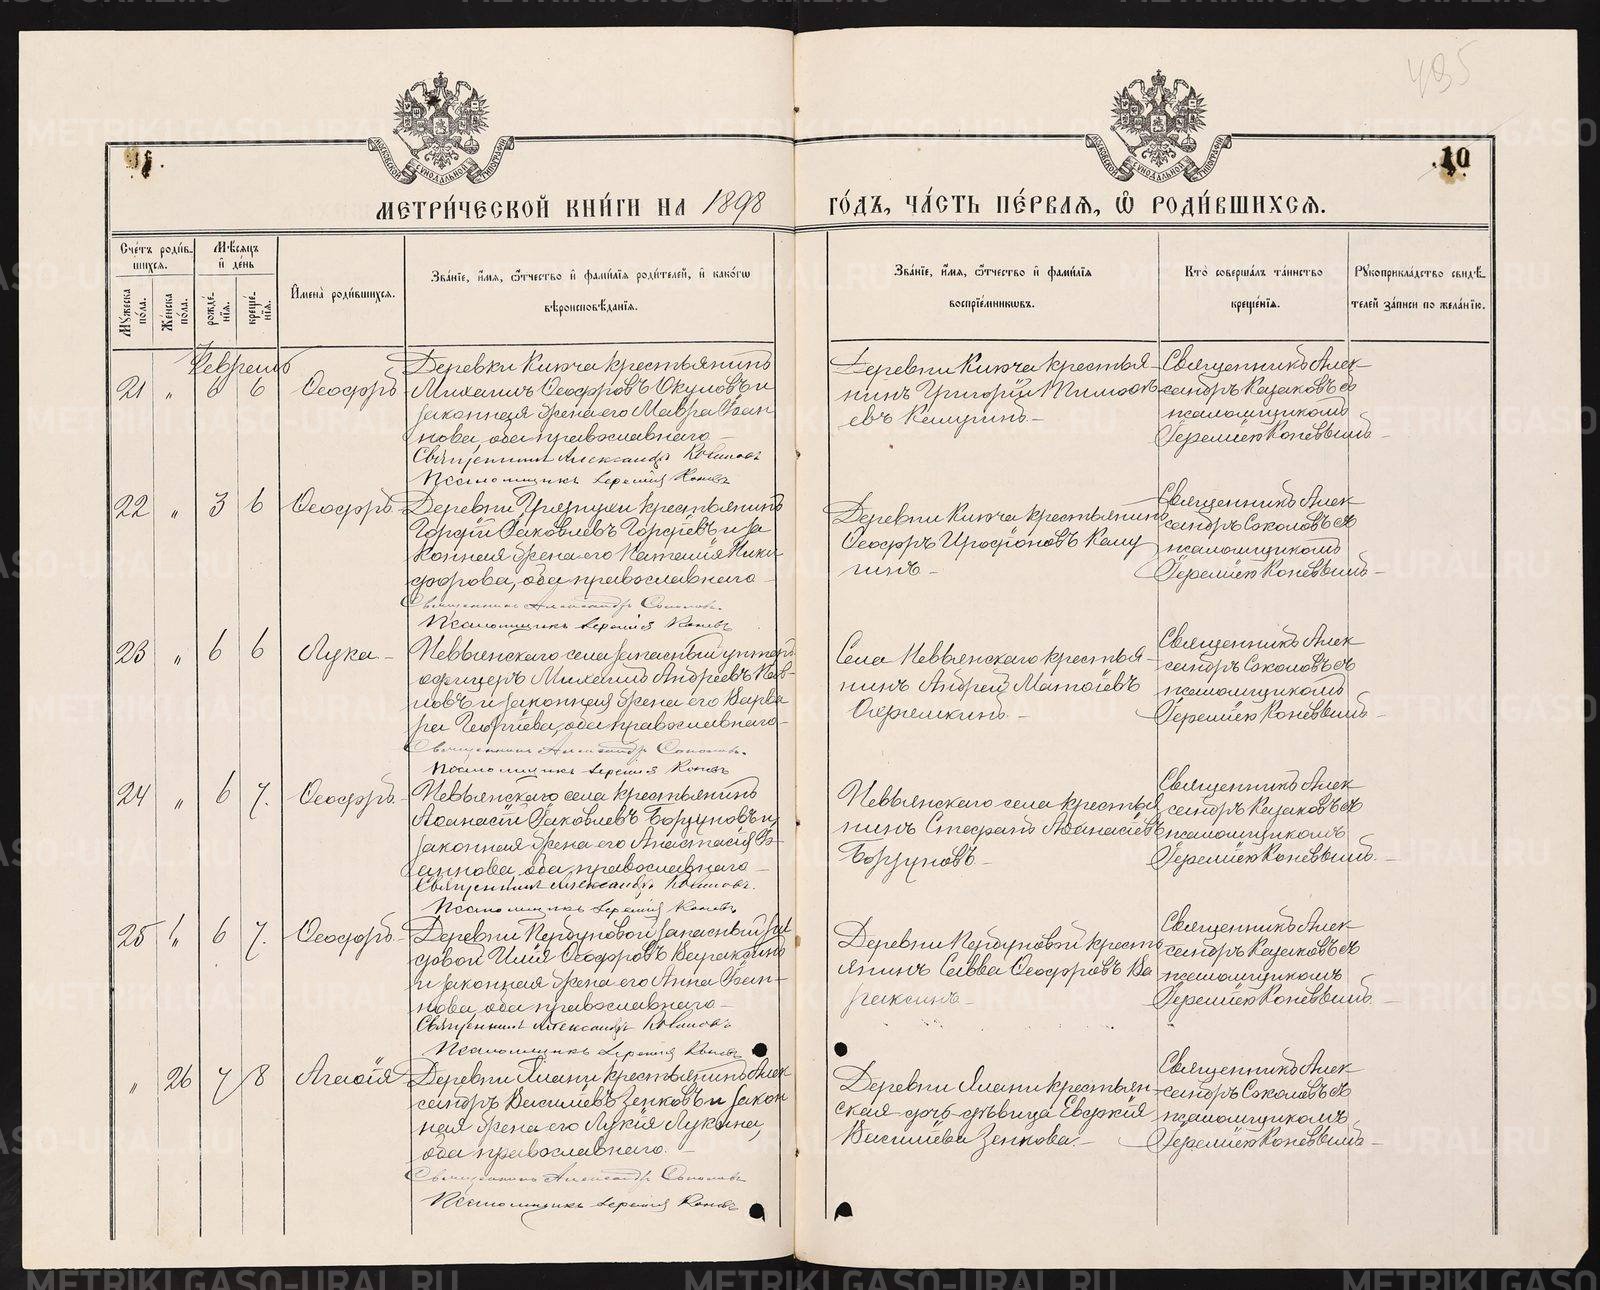 435
10
МЕТРИ́ЧЕСКОЙ КНИ́ГИ НА 1898 ГО́ДЪ, ЧА́СТЬ ПЕ́РВАЯ, Ѽ РОДИ́ВШИХСЯ.
Сче́тъ роди́в-
шихся.
Мѣ́сяцъ
и́ де́нь
Му́жеска
по́ла.
Же́нска
по́ла.
рожде́-
нїя.
креще́-
нїя.
И҆мена̀ роди́вшихся.
Зва́нїе, и҆́мя, ѻ҆́тчество и҆ фами́лїѧ роди́телей, и҆ како́гѡ
вѣроисповѣ́данїя.
Зва́нїе, и҆́мя, ѻ҆́тчество и҆ фами́лїѧ
воспрїе́мниковъ.
Кто̀ соверша́лъ та́инство
креще́нїя.
Рꙋкоприкла́дство свидѣ́-
телей за́писи по жела́нїю.
Февраль
21 " 6 6 Ѳеодоръ
Деревни Ключа крестьянинъ
Михаилъ Ѳеодоровъ Окуловъ и
законная жена его Мавра Іоан
нова, оба православнаго
Священникъ Александръ Казаковъ
Псаломщикъ Іеремія Коневъ
Деревни Ключа крестья-
нинъ Григорій Тимоѳе
евъ Калугинъ
Священникъ Алек-
сандръ Казаковъ съ
псаломщикомъ
Іереміею Коневымъ
22 " 3 6 Ѳеодоръ
крестьянинъ
Георгій Іаковлевъ Георгіевъ и за
конная жена его Наталія Ники
форова, оба православнаго
Священникъ Александръ Соколовъ
Псаломщикъ Іеремія Коневъ
Деревни Ключа крестьянинъ
Ѳеодоръ Иродіоновъ Калу
гинъ
Священникъ Алек
сандръ Соколовъ съ
псаломщикомъ
Іереміею Коневымъ
23 " 6 6 Лука
Невьянскаго села запасный унтеръ
офицеръ Михаилъ Андреевъ
и законная жена его Варва
ра Георгіева, оба православнаго
Священникъ Александръ Соколовъ
Псаломщикъ Іеремія Коневъ
Села Невьянскаго крестья-
нинъ Андрей Матѳіевъ
Священникъ Алек
сандръ Соколовъ съ
псаломщикомъ
Іереміею Коневымъ
24 " 6 7. Ѳеодоръ
Невьянскаго села крестьянинъ
Аѳанасій Іаковлевъ Борзуновъ и
законная жена его Анастасія Іо
аннова, оба православнаго
Священникъ Александръ Казаковъ.
Псаломщикъ Іеремія Коневъ
Невьянскаго села крестья
нинъ Стефанъ Аѳанасіевъ
Борзуновъ
Священникъ Алек
сандръ Казаковъ съ
псаломщикомъ
Іереміею Коневымъ.
25 " 6 7. Ѳеодоръ
Деревни Первуновой запасный ря
довой Илія Ѳеодоровъ Вараксинъ
и законная жена его Анна Іоан-
нова, оба православнаго
Священникъ Александръ Казаковъ
Псаломщикъ Іеремія Коневъ
Деревни Первуновой кресть
янинъ Савва Ѳеодоровъ Ва
раксинъ
Священникъ Алек
сандръ Казаковъ съ
псаломщикомъ
Іереміею Коневымъ.
" 26 7 8 Агаѳія
Деревни Ялани крестьянинъ Алек
сандръ Василіевъ Зенковъ и закон
ная жена его Лукія Лукина,
оба православнаго.
Священникъ Александръ Соколовъ
Псаломщикъ Іеремія Коневъ
Деревни Ялани крестьян
ская дочь-дѣвица Евдокія
Василіева Зенкова.
Священникъ Алек
сандръ Соколовъ съ
псаломщикомъ
Іереміею Коневымъ
METRIKI.GASO-URAL.RU